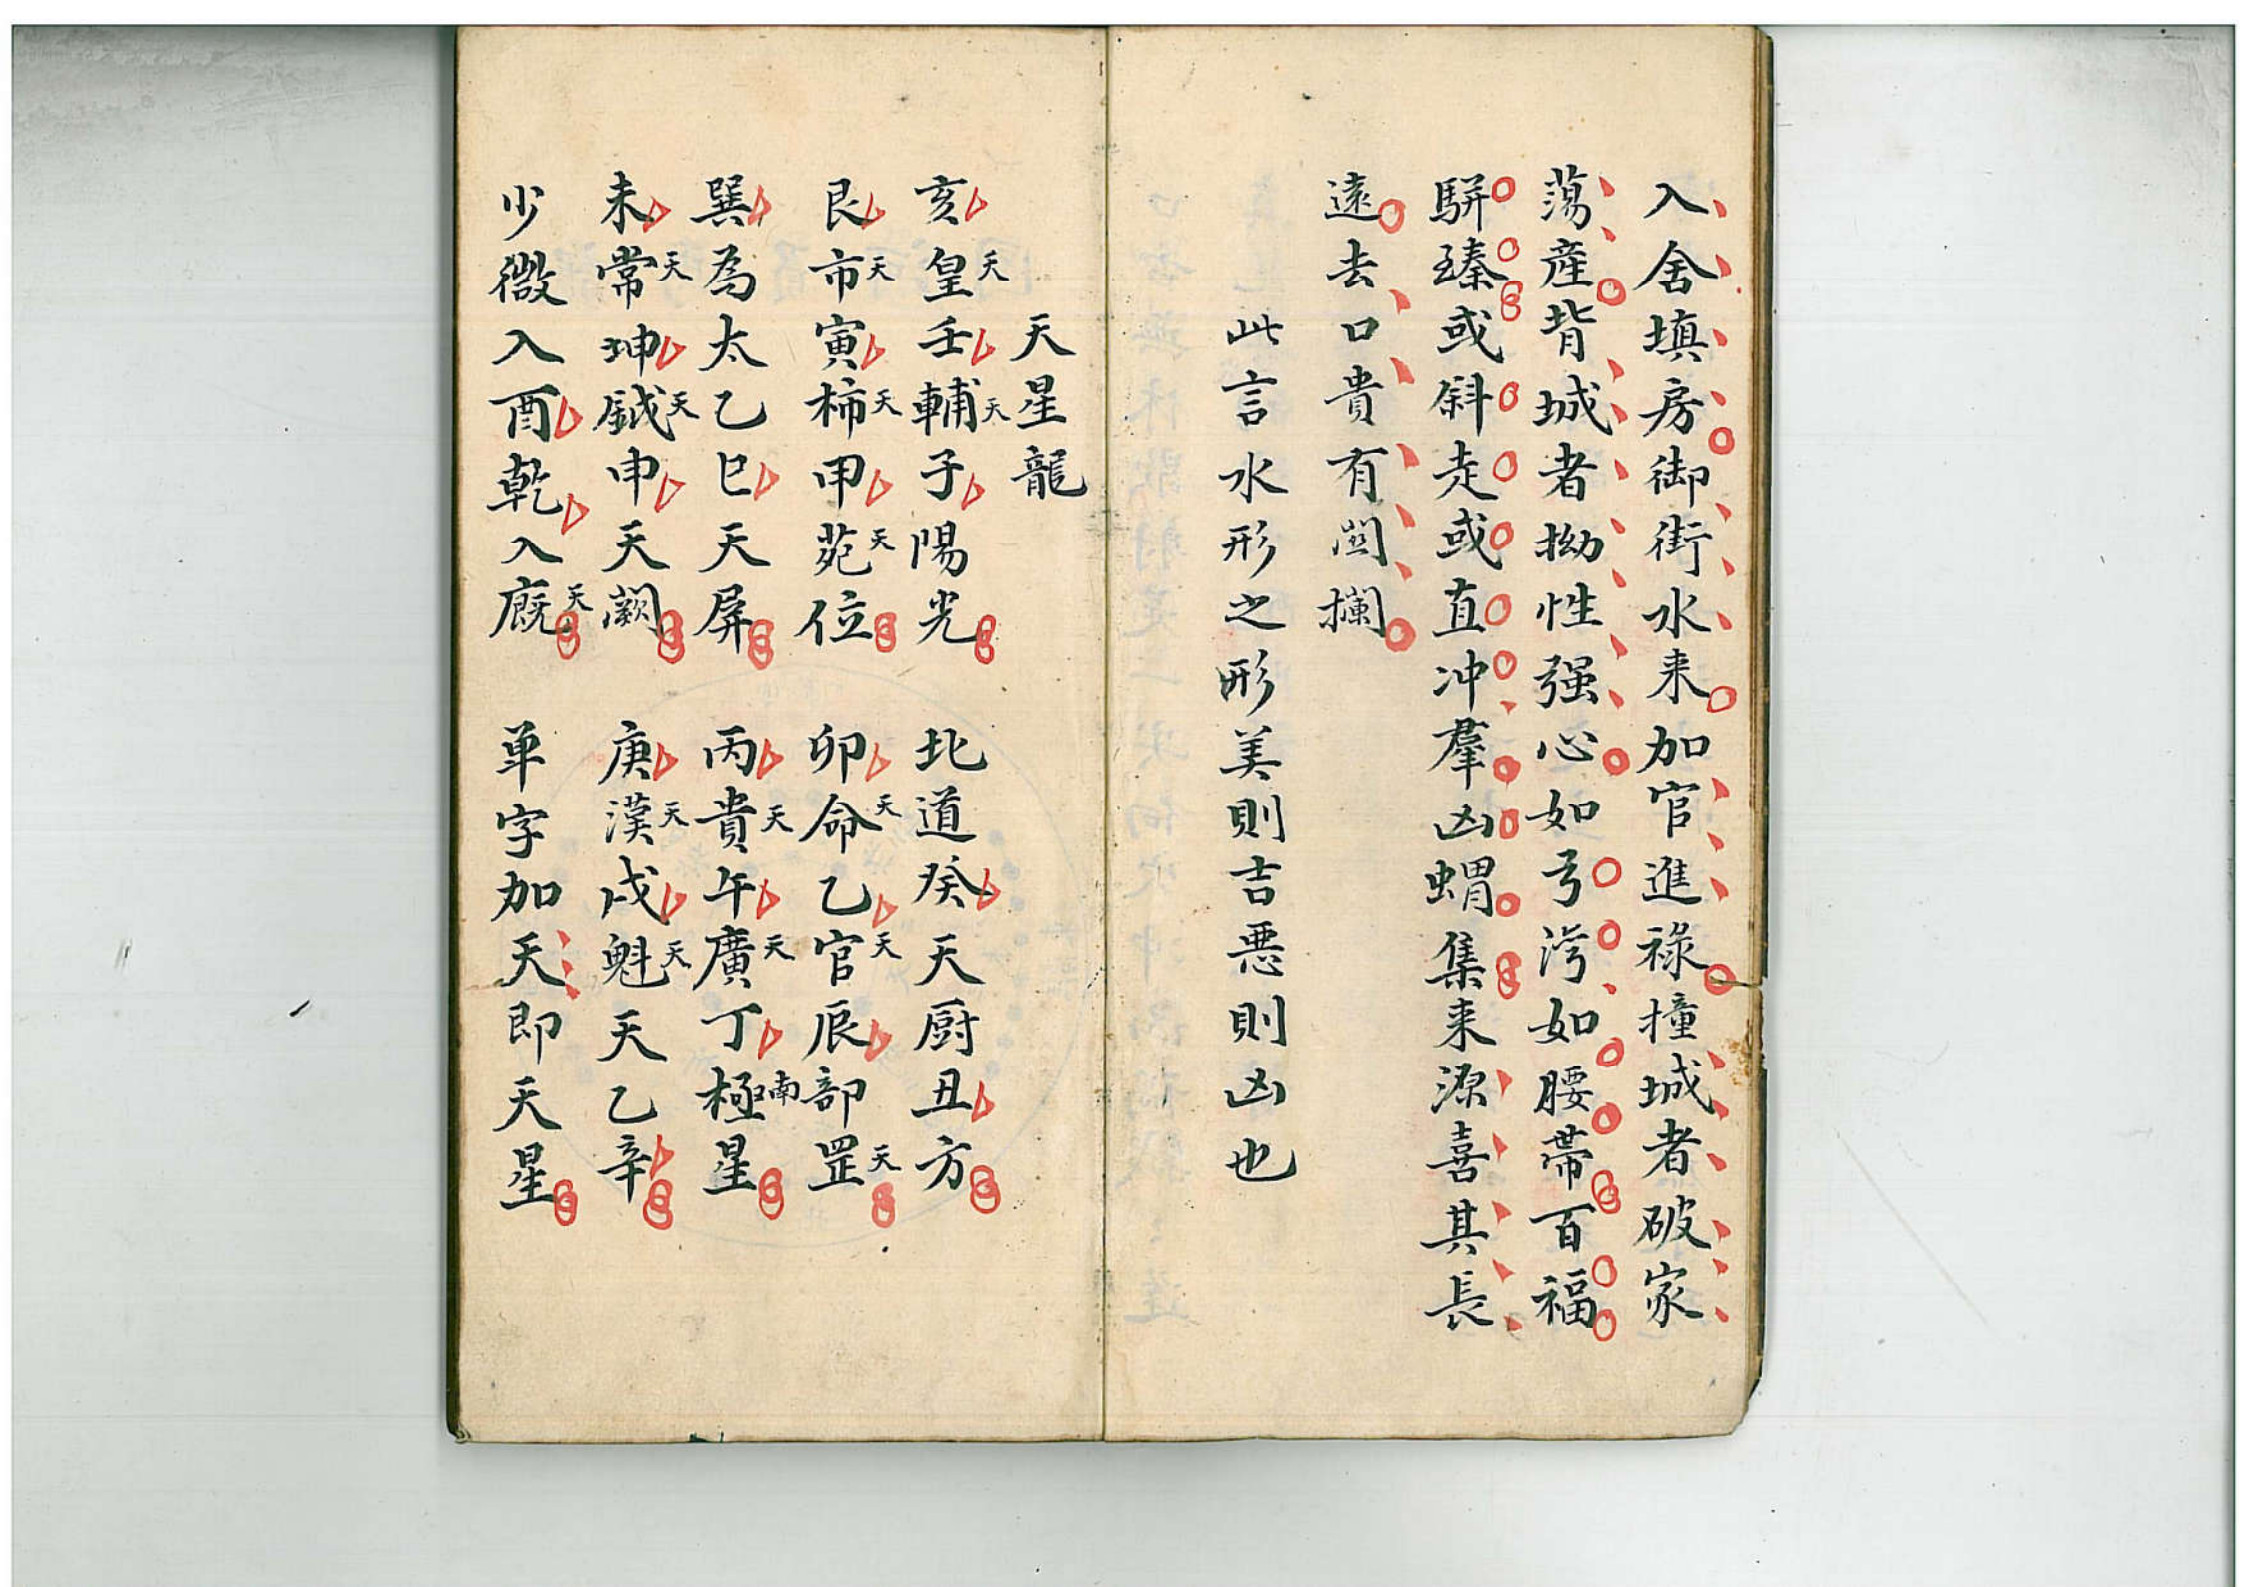 入舍填房御街水来加官進祿撞城者破家
蕩産背城者拗性强心如弓湾如腰帯百福
駢臻或斜走或直冲羣凶蝟集来源喜其長
遠去口貴有関攔
此言水形之形美則吉悪則凶也
天星龍
亥皇天壬輔天子陽光 北道癸天厨丑方
艮市天寅柿天甲苑天位 卯命天乙官天辰部罡天
巽為太乙巳天屏 丙貴天午廣天丁極南星
未常天坤鉞天申天闕 庚漢天戌魁天天乙辛
少微入酉乾入廐天 单字加天即天星